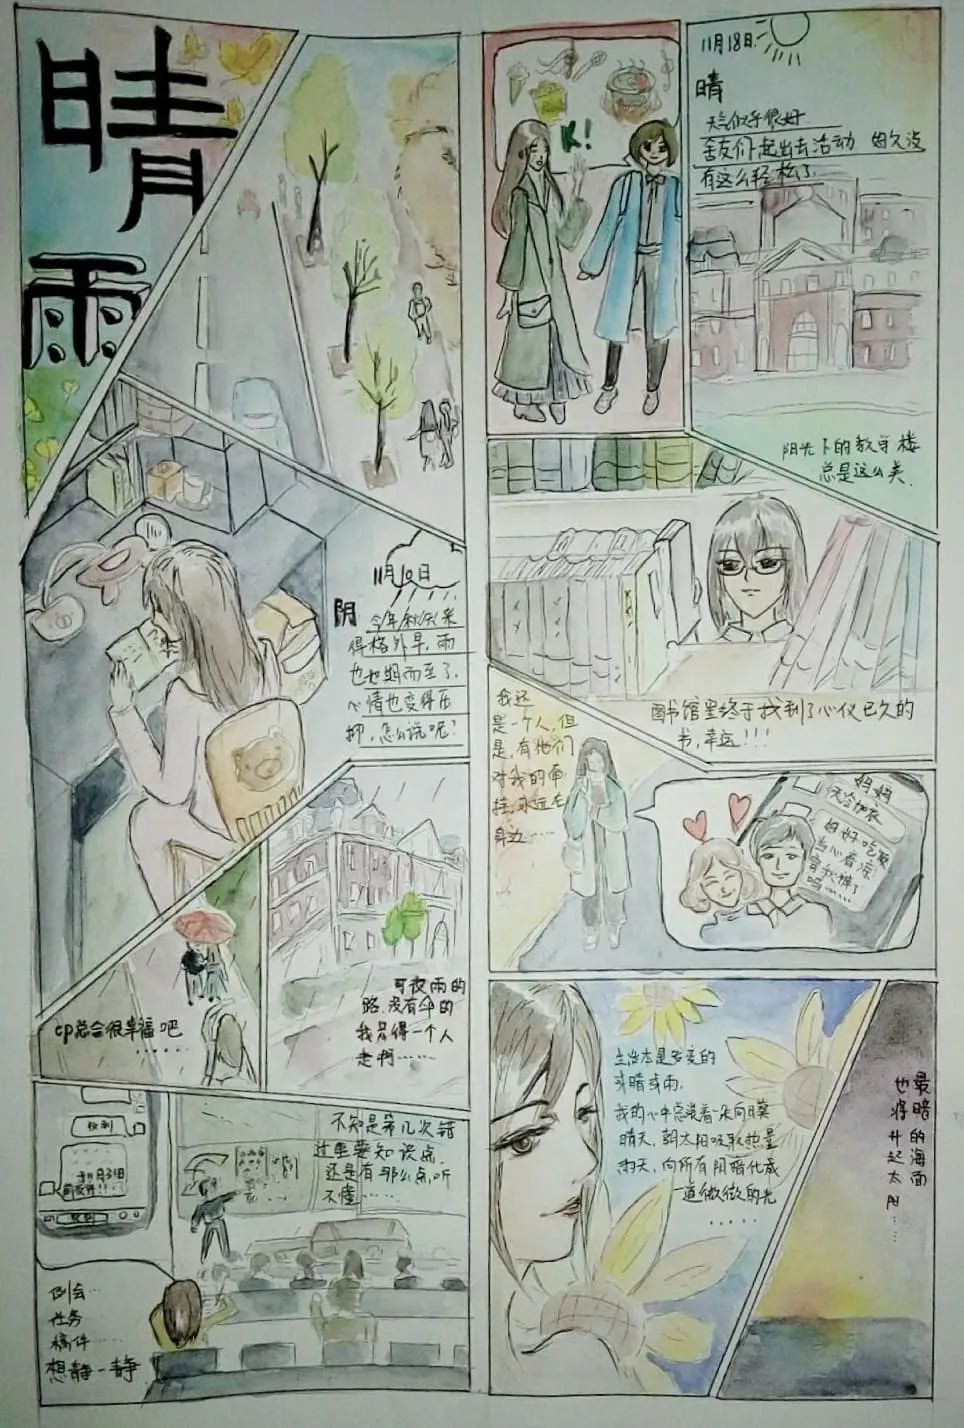 晴
雨
11月10日
阴
今年秋天来
得格外早，雨
也如期而至了，
心情也变得压
抑，怎么说呢？
cp总会很幸福吧
……
可夜雨的
路，没有伞的
我只得一个人
走啊……
收到
收到
例会…
任务
稿件……
想静一静
不知是第几次错
过重要知识点，
还是有那么点，听
不懂……
K!
11月18日
晴
天气似乎很好
舍友们一起出去活动 好久没
有这么轻松了.
阳光下的教学楼
总是这么美.
图书馆里终于找到了心仪已久的
书，幸运！！！
我还
是一个人，但
是，有他们
对我的牵
挂，永远在
身边……
妈妈
天冷加衣
好好吃饭
当心着凉
穿秋裤了
吗……
生活本是多变的
或晴或雨，
我的心中总装着一朵向日葵
晴天，朝太阳吸取热量
雨天，向所有阴暗化成
一道微微的光
……
最暗的海面
也将升起太阳……